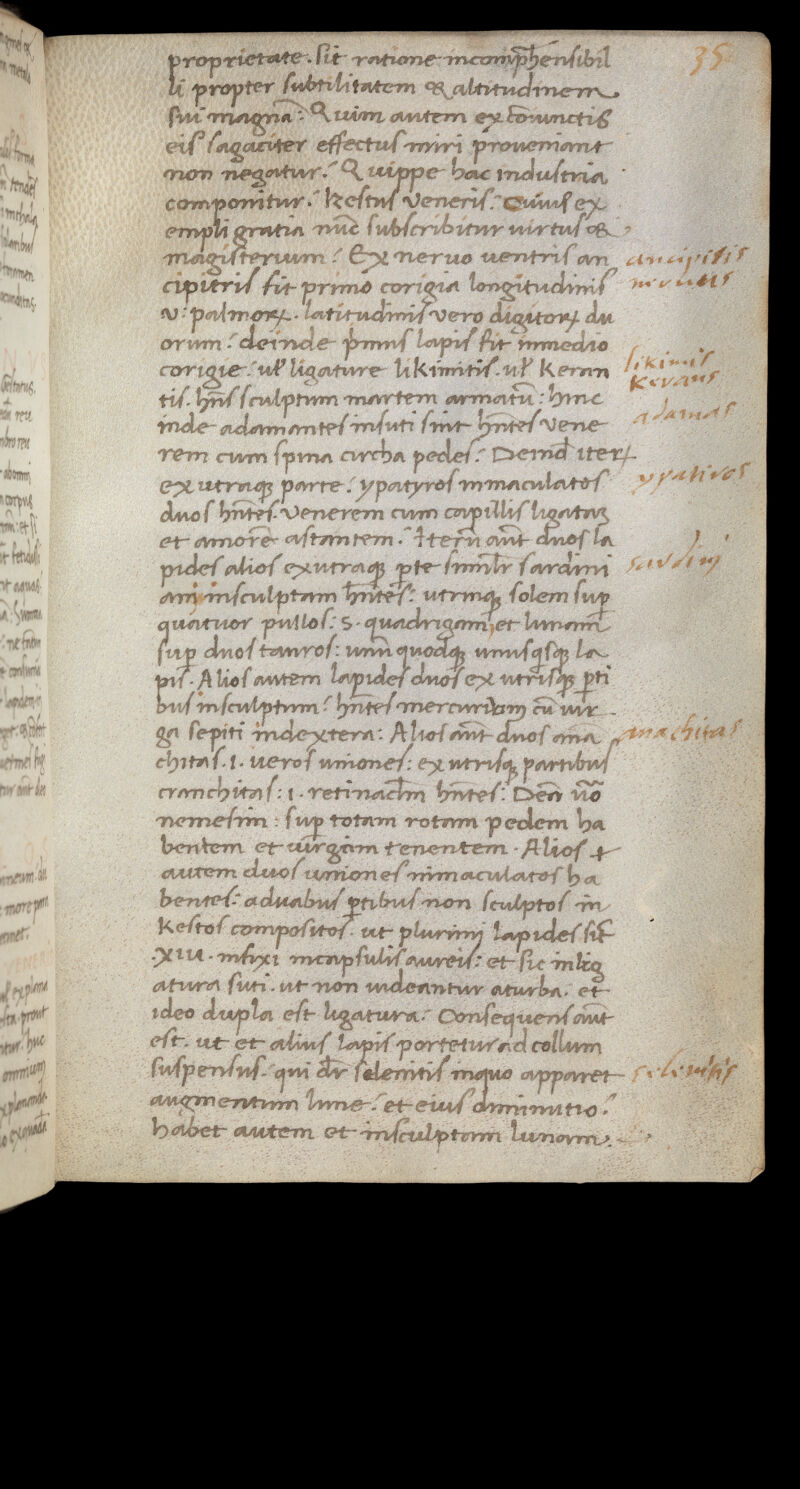 35
proprietate. sit ratione incomp̄hensibil
li propter subtilitatem & altitudinem
sui magnā: Quim autem ex coniunctis
eis sagaciter effectus miri proveniant
non negatur: Quippe hac industria
componitur: Kestus Veneris: Cuius ex
empli gratia nūc subscribitur virtus &
magisterium: Ex nervo ventris an
cipitris fit primo corigia longitudinis
V: palmoꝝ. latitudinis vero digitoꝝ du
orum: deinde p̄mus lapis fit inmedio
corigie: ul̄ ligature likimitis. ul̄ Keran
tis. hn̄s sculptum martem armatū: hinc
inde adamantes insuti sint hn̄tes Vene
rem cum spina circha pedes: Deind̄ iteꝝ
ex utraqꝫ parte: ypatyros inmaculatos
duos hn̄tes. Venerem cum capillis ligataꝫ
et amorē astantem: Iterū aūt duos la
pides alios exutraqꝫ ꝑte simil̄r sardini
am insculptam hn̄tes: utrinqꝫ solem suꝑ
quatuor pullos: s. quadrigam, et lunam
suꝑ duos tauros: unū quodqꝫ unusqsqꝫ la
pis. Alios autem lapides duos ex utrisqꝫ ꝑti
bus insculptum: hn̄tes mercurium cū vir
ga sepiti indextera: Alios aūt duos ama
chitas. i. veros uniones: ex utrisqꝫ partibus
cranchitas: i. retinaclm̄ hn̄tes: Deā v̄o
nemesim: suꝑ totam rotam pedem ha
bentem et virgam tenentem. Alios
autem duos uniones inmaculatos ha
bentes: aduabus ꝑtibus non sculptos in
Kestos compositos. ut plurimi lapides sīt
.XIII. infixi incapsulis aureis: et sic inlig
atura suti. ut non videantur aturba. et
ideo dupla est ligatura: Consequens aūt
est. ut et alius lapis portetur ad collum
suspensus. qui dr̄ selenitis inquo apparet
augmentum lune: et eius diminutio:
habet autem et insculptam lunam.
ancipitis
nervus
likimis
Kerans
adamas
ypatiros
sardinij
machitas
selenitis